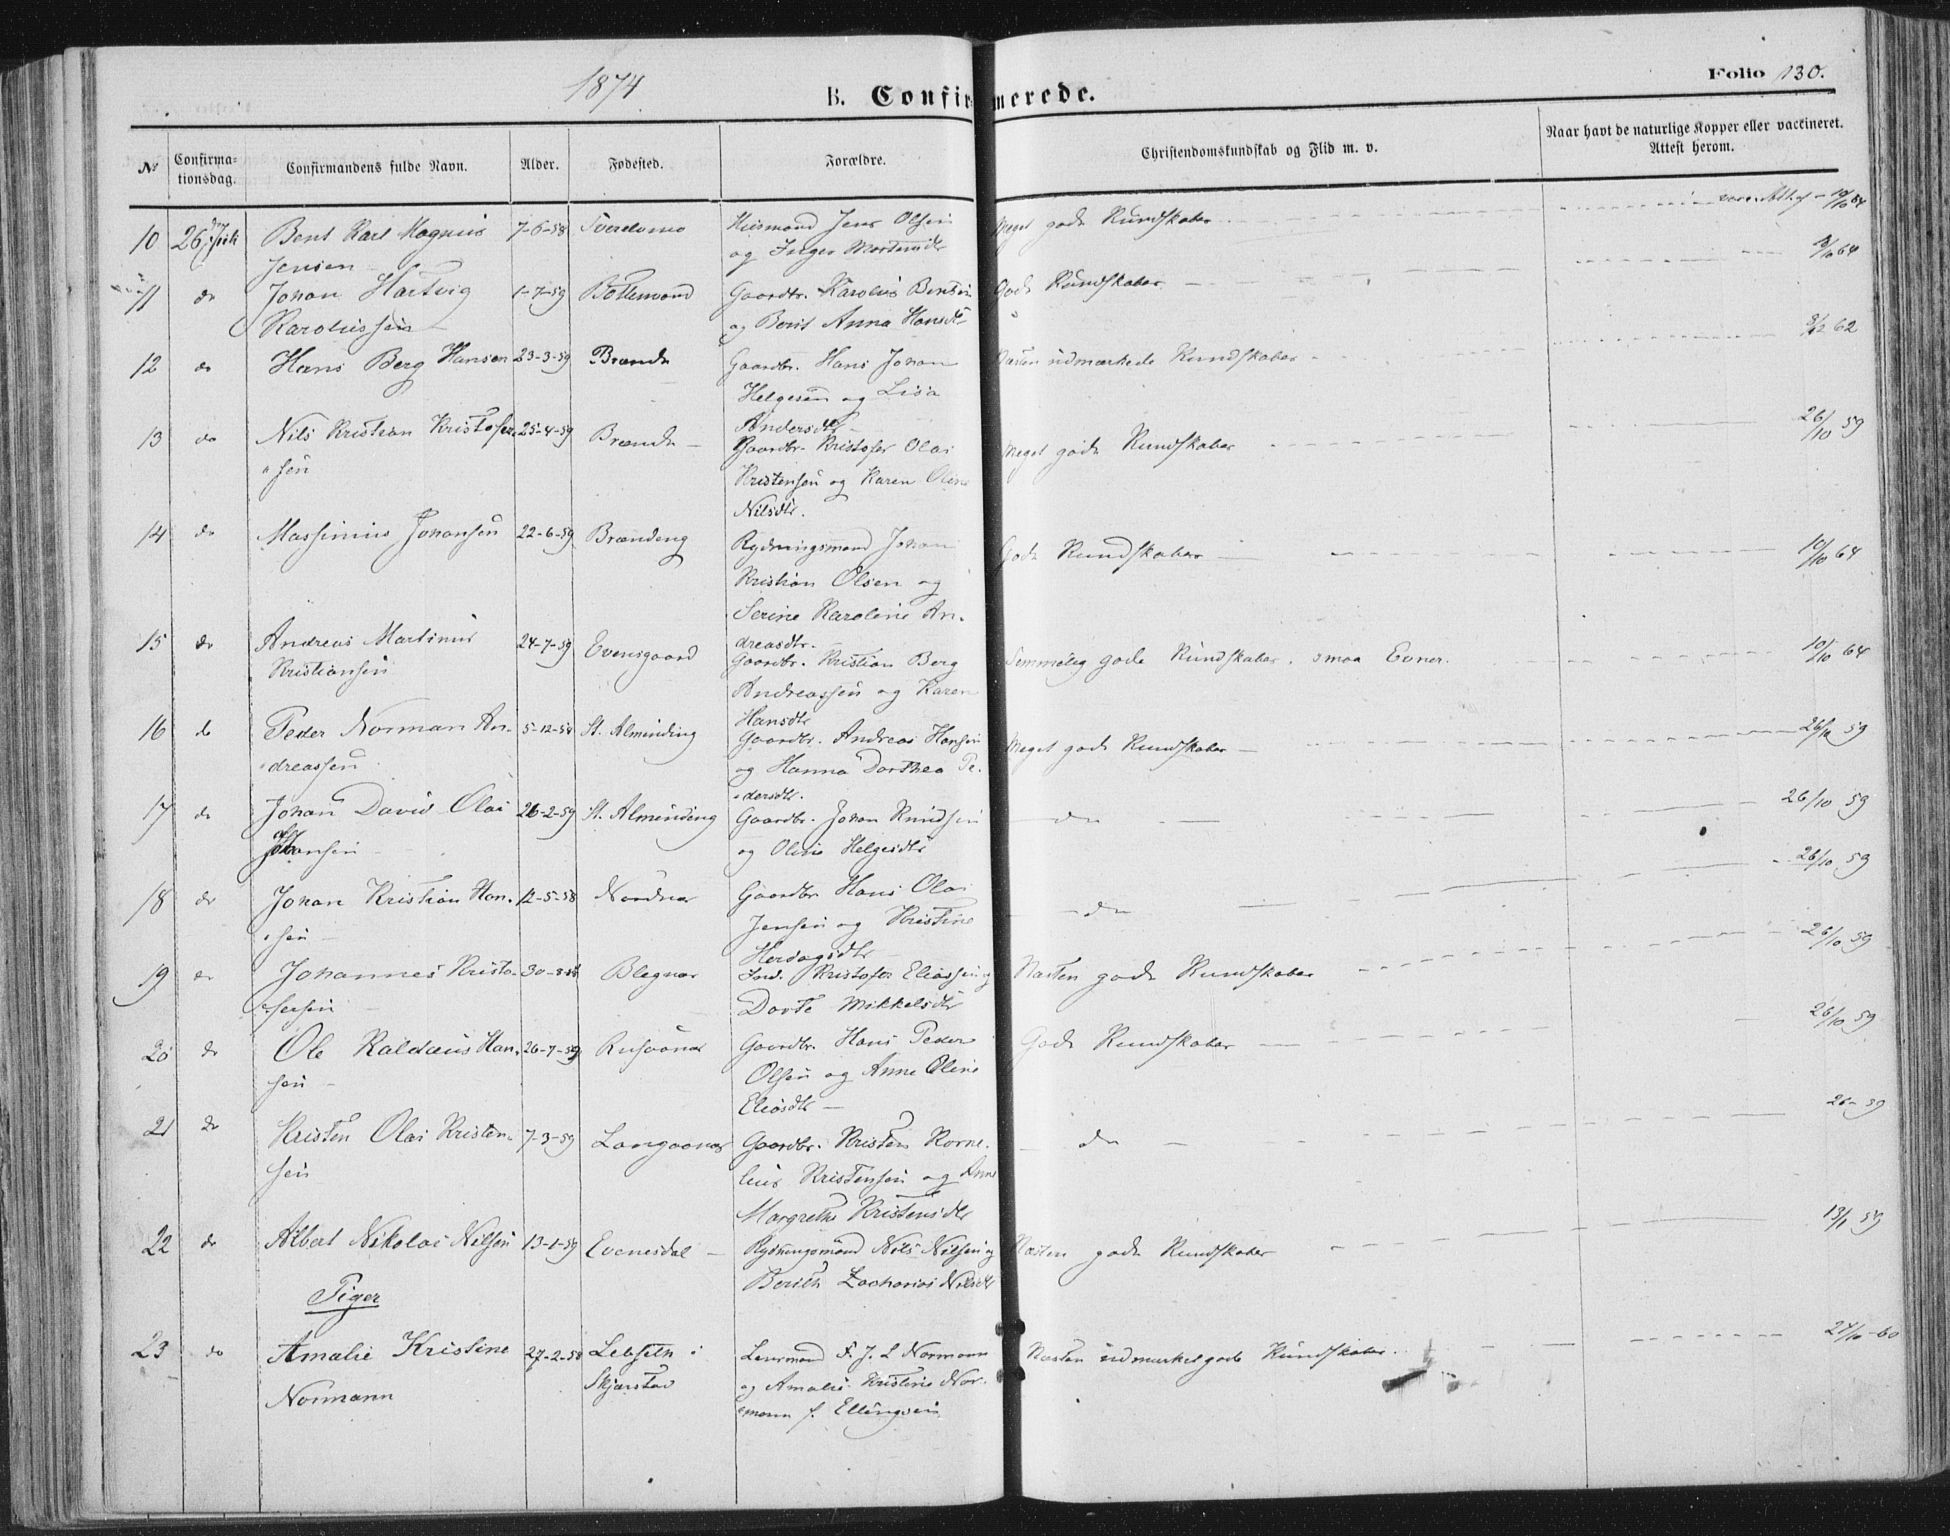 1874
B. Confirmerede.
Folio 130.
No
Confirmationsdag.
Confirmandens fulde Navn.
Alder.
Fødested.
Forældre.
Christendomskundskab og Flid m. v.
Naar havt de naturlige Kopper eller vaccineret. Attest herom.
10 26 Juli Bent Karl Magnus 7-6-58 Huusmand Jens Olsen Meget gode Kundskaber vacc. Att. af 10/10 64
Jensen og Inger Mortensdtr
11 do Johan Hartvig 1-7-59 Gaardbr. Karolus Bentsen Gode Kundskaber 8/10 64
Karolussen og Berit Anna Hansdtr
12 do Hans Berg Hansen 23-3-59 Brænde Gaardbr. Hans Johan Næsten udmærkede Kundskaber 62
Helgesen og Lisa
Andersdtr
13 do Nils Kristian Kristofer 25-4-59 Brænde Gaardbr. Kristofer Olai Meget gode Kundskaber 26/10 59
sen Kristensen og Karen Oline
Nilsdtr.
14 do Massinius Johansen 22-6-59 Brændeng Rydningsmand Johan Gode Kundskaber 10/10 64
Kristian Olsen og
Serine Karoline An-
dreasdtr.
15 do Andreas Martinus 24-7-59 Evensgaard Gaardbr. Kristian Berg Temmelig gode Kundskaber, smaa Evner. 10/10 64
Kristiansen Andreassen og Karen
Hansdtr
16 do Peder Norman An- 5-12-58 St. Alminding Gaardbr. Andreas Hansen Meget gode Kundskaber 26/10 59
dreassen og Hanna Dorthea Pe-
dersdtr.
17 do Johan David Olai 26-2-59 St. Alminding Gaardbr. Johan Knudsen do 26/10 59
Johansen og Oline Helgesdtr
18 do Johan Kristian Han- 12-5-58 Nordnes Gaardbr. Hans Olai do 26/10 59
sen Jensen og Kristine
Herdagsdtr
19 do Johannes Kristo- 30-8-58 Ind. Kristofer Eliassen og Næsten gode Kundskaber 26/10 59
fersen Dorte Mikkelsdtr
20 do Ole Kaldæus Han- 26-7-59 Rusaanes Gaardbr. Hans Peder Gode Kundskaber 26/10 59
sen Olsen og Anne Oline
Eliasdtr
21 do Kristen Olai Kristen- 7-3-59 Langaanes Gaardbr. Kristen Korne- do 26- 59
sen lius Kristensen og Anne
Margrethe Kristensdtr
22 do Albert Nikolai Nilsen 13-1-59 Evenesdal Rydningsmand Nils Nilsen og Næsten gode Kundskaber 13/1 59
Berith Zacharias Nilsdtr
Piger
23 do Amalie Kristine 27-2-58 Lebseth i Lensmand F. J. L Normann Næsten udmærket gode Kundskaber. 24/10-60
Normann Skjerstad og Amalie Kristine Nor-
mann f. Ellingsen